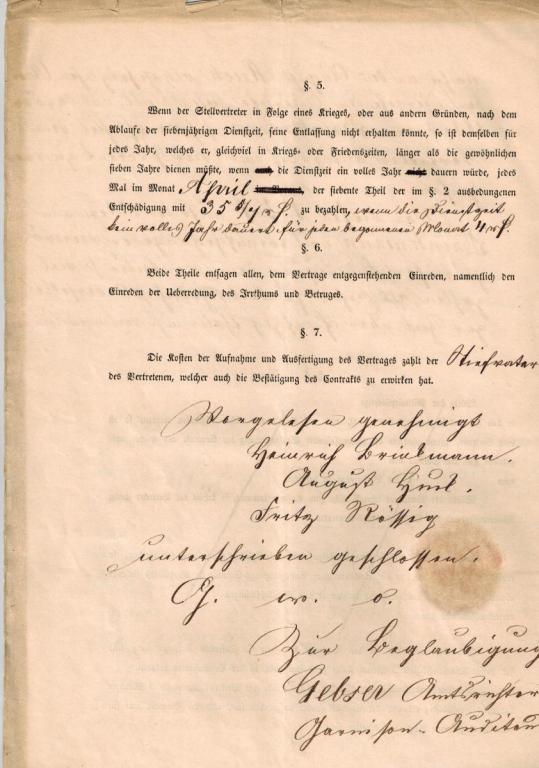 §. 5.
Wenn der Stellvertreter in Folge eines Krieges, oder aus andern Gründen, nach dem
Ablaufe der siebenjährigen Dienstzeit, seine Entlassung nicht erhalten könnte, so ist demselben für
jedes Jahr, welches er, gleichviel in Kriegs- oder Friedenszeiten, länger als die gewöhnlichen
sieben Jahre dienen müßte, wenn die Dienstzeit ein volles Jahr dauern würde, jedes
Mal im Monat April, der siebente Theil der im §. 2 ausbedungenen
Entschädigung mit 35 zu bezahlen, wenn die Dienstzeit
kein volles Jahr dauert für jeden begonnenen Monat 4
§. 6.
Beide Theile entsagen allen, dem Vertrage entgegenstehenden Einreden, namentlich den
Einreden der Ueberredung, des Irrthums und Betruges.
§. 7.
Die Kosten der Aufnahme und Ausfertigung des Vertrages zahlt der Stiefvater
des Vertretenen, welcher auch die Bestätigung des Contrakts zu erwirken hat.
Vorgelesen genehmigt
Heinrich Brinkmann.
August
Fritz Rössig
unterschrieben geschlossen.
G. w. o.
Zur Beglaubigung
Gebser Amtsrichter
Garnison-Auditeu